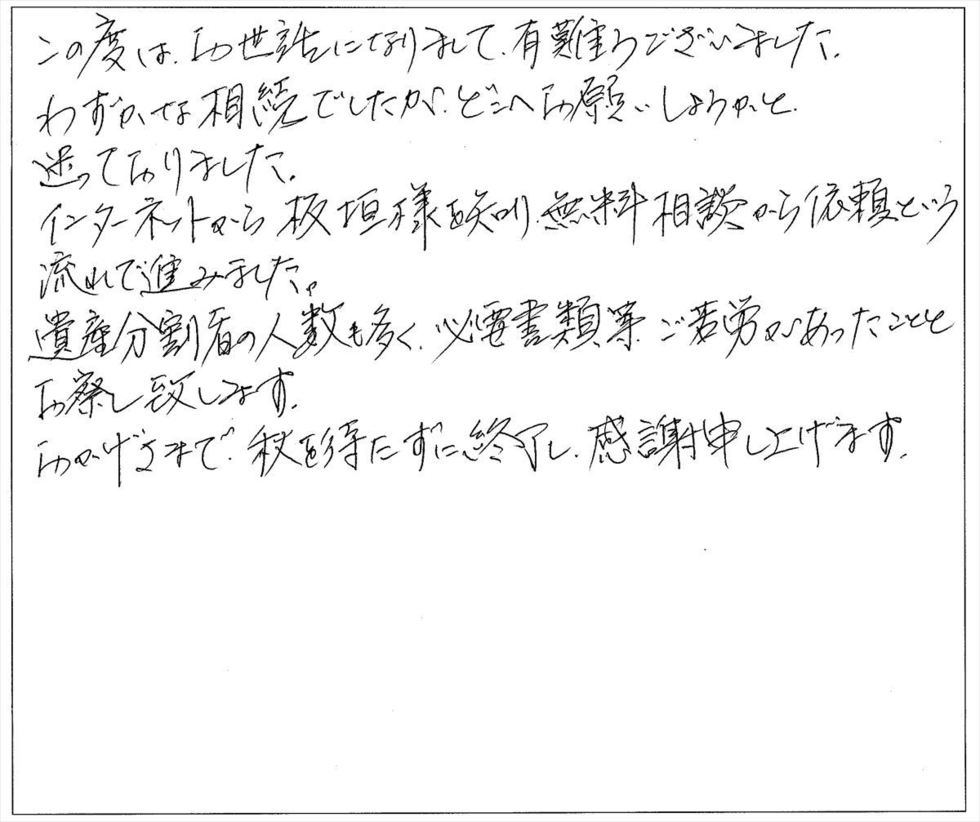 この度は、お世話になりまして、有難うございました。
わずかな相続でしたが、どこへお願いしようかと
迷っておりました。
インターネットから板垣様を知り、無料相談から依頼という
流れで進みました。
遺産分割者の人数も多く、必要書類等、ご苦労があったことと
お察し致します。
おかげさまで、秋を待たずに終了し、感謝申し上げます。